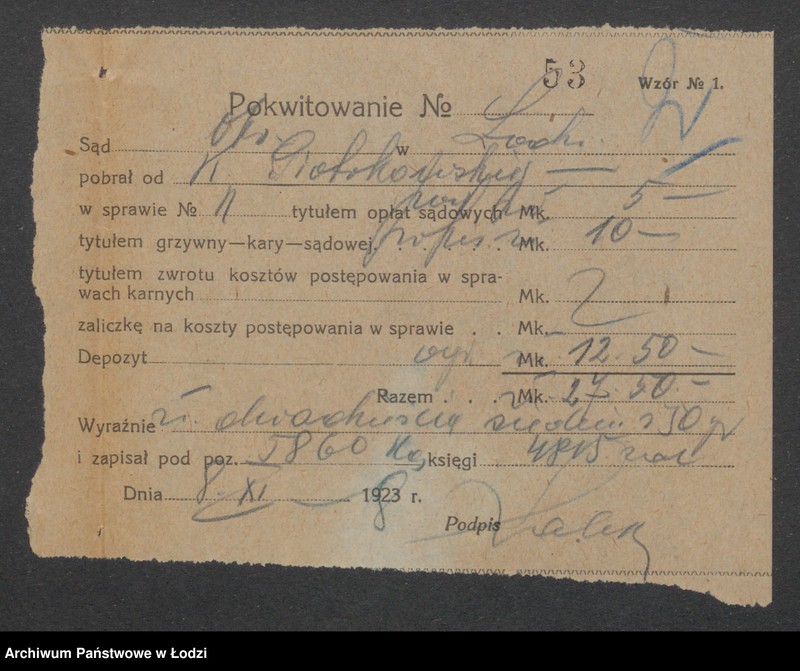 53
Wzór № 1.
Pokwitowanie №
Sąd Okr. w Łodzi
pobrał od
w sprawie № tytułem opłat sądowych Mk. 5 —
tytułem grzywny—kary—sądowej. Mk. 10 —
tytułem zwrotu kosztów postępowania w spra-
wach karnych Mk.
zaliczkę na koszty postępowania w sprawie . . Mk.
Depozyt Mk. 12.50 —
Razem . . . Mk. 27.50 —
Wyraźnie zł. dwadzieścia siedem i 50 gr
i zapisał pod poz. 5860 księgi 4815
Dnia 8 XI 1923 r. 8
Podpis
Archiwum Państwowe w Łodzi